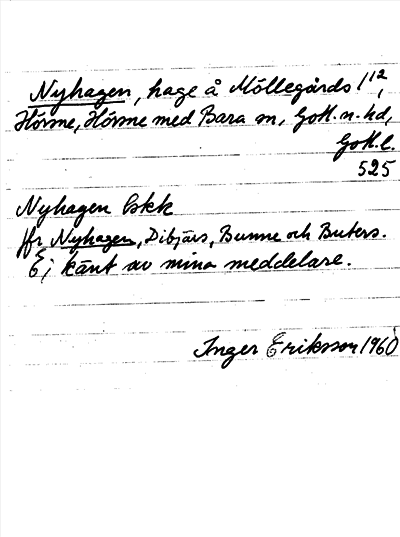 Nyhagen, hage å Möllegårds 1¹²,
Hörsne, Hörsne med Bara sn, Gotl. n. hd,
Gotl. l.
525
Nyhagen Ekk
jfr Nyhagen, Dibjärs, Bunne och Buters.
Ej känt av mina meddelare.
Inger Eriksson 1960